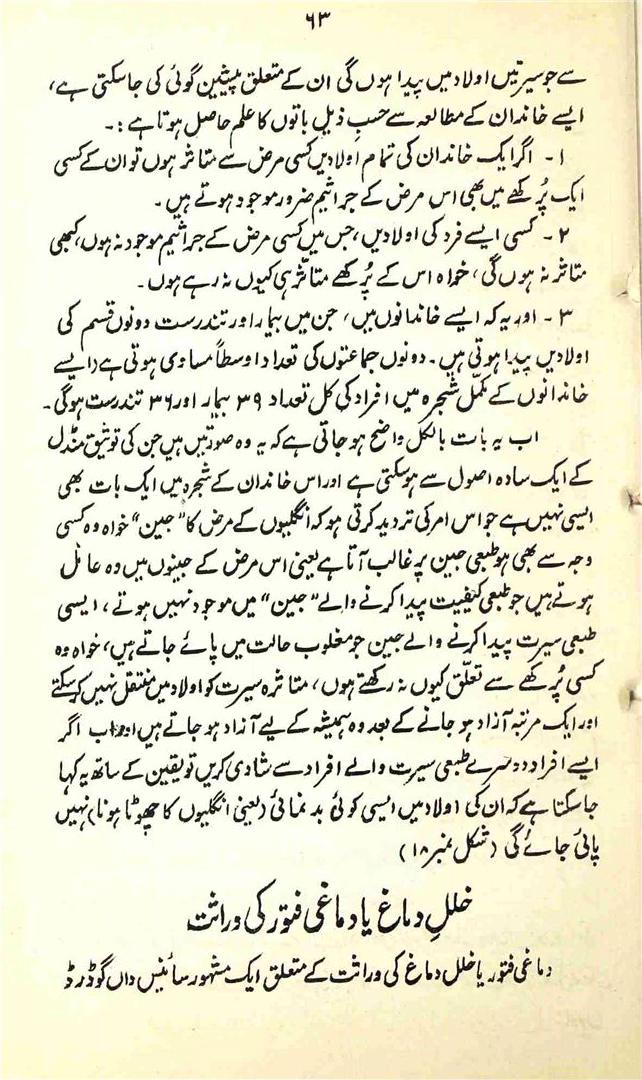 ۶۳
سے جو سیرتیں اولاد میں پیدا ہوں گی ان کے متعلق پیشین گوئی کی جا سکتی ہے،
ایسے خاندان کے مطالعہ سے حسبِ ذیل باتوں کا علم حاصل ہوتا ہے:۔
۱۔ اگر ایک خاندان کی تمام اولادیں کسی مرض سے متاثر ہوں تو ان کے کسی
ایک پُرکھے میں بھی اس مرض کے جراثیم ضرور موجود ہوتے ہیں۔
۲۔ کسی ایسے فرد کی اولادیں، جس میں کسی مرض کے جراثیم موجود نہ ہوں، کبھی
متاثر نہ ہوں گی، خواہ اس کے پُرکھے متاثر ہی کیوں نہ رہے ہوں۔
۳۔ اور یہ کہ ایسے خاندانوں میں، جن میں بیمار اور تندرست دونوں قسم کی
اولادیں پیدا ہوتی ہیں۔ دونوں جماعتوں کی تعداد اوسطاً مساوی ہوتی ہے (ایسے
خاندانوں کے مکمّل شجرہ میں افراد کی کل تعداد ۳۹ بیمار اور ۳۶ تندرست ہوگی۔
اب یہ بات بالکل واضح ہو جاتی ہے کہ یہ وہ صورتیں ہیں جن کی توثیق منڈل
کے ایک سادہ اصول سے ہو سکتی ہے اور اس خاندان کے شجرہ میں ایک بات بھی
ایسی نہیں ہے جو اس امر کی تردید کرتی ہو کہ انگلیوں کے مرض کا "جین" خواہ وہ کسی
وجہ سے بھی ہو طبعی جین پر غالب آتا ہے یعنی اس مرض کے جینوں میں وہ عامل
ہوتے ہیں جو طبعی کیفیت پیدا کرنے والے "جین" میں موجود نہیں ہوتے، ایسی
طبعی سیرت پیدا کرنے والے جین جو مغلوب حالت میں پائے جاتے ہیں، خواہ وہ
کسی پُرکھے سے تعلّق کیوں نہ رکھتے ہوں، متاثرہ سیرت کو اولاد میں منتقل نہیں کر سکتے
اور ایک مرتبہ آزاد ہو جانے کے بعد وہ ہمیشہ کے لیے آزاد ہو جاتے ہیں اب اگر
ایسے افراد دوسرے طبعی سیرت والے افراد سے شادی کریں تو یقین کے ساتھ یہ کہا
جا سکتا ہے کہ ان کی اولاد میں ایسی کوئی بد نمائی (یعنی انگلیوں کا چھوٹا ہونا) نہیں
پائی جائے گی (شکل نمبر ۱۸)
خللِ دماغ یا دماغی فتور کی وراثت
دماغی فتور یا خلل دماغ کی وراثت کے متعلق ایک مشہور سائنس داں گوڈرڈ